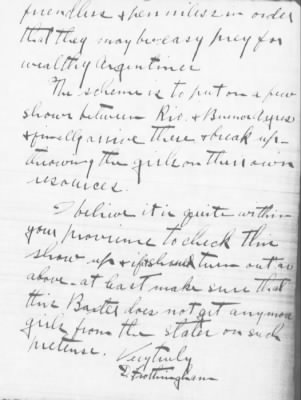 friendless & penniless in order
that they may be easy prey for
wealthy Argentines
The scheme is to put on a few
shows between Rio. & Buenos Ayres
& finally arrive there & break up -
throwing the girls on their own
resources.
I believe it is quite within
your province to check this
show up & if should turn out as
above at least make sure that
this Baxter does not get anymore
girls from the states on such
pretense.
Very truly
Frothingham